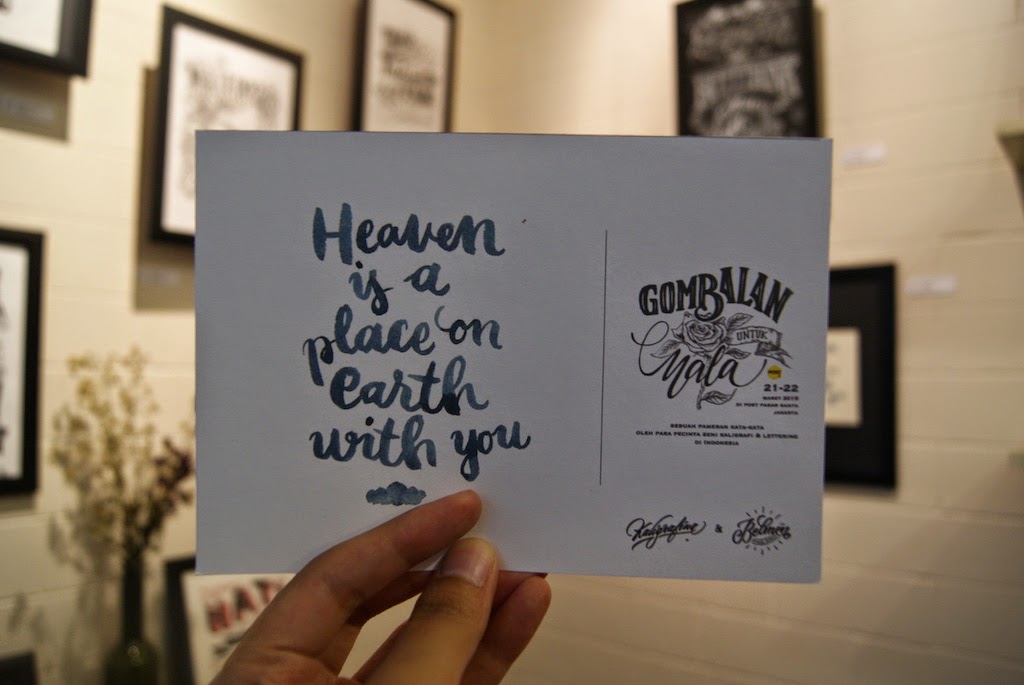 Heaven
is a
place on
earth
with you
GOMBALAN
UNTUK
Nala
21-22
MARET 2015
DI POST PASAR SANTA
JAKARTA
SEBUAH PAMERAN KATA-KATA
OLEH PARA PECINTA SENI KALIGRAFI & LETTERING
DI INDONESIA
Kaligrafina & Belmen